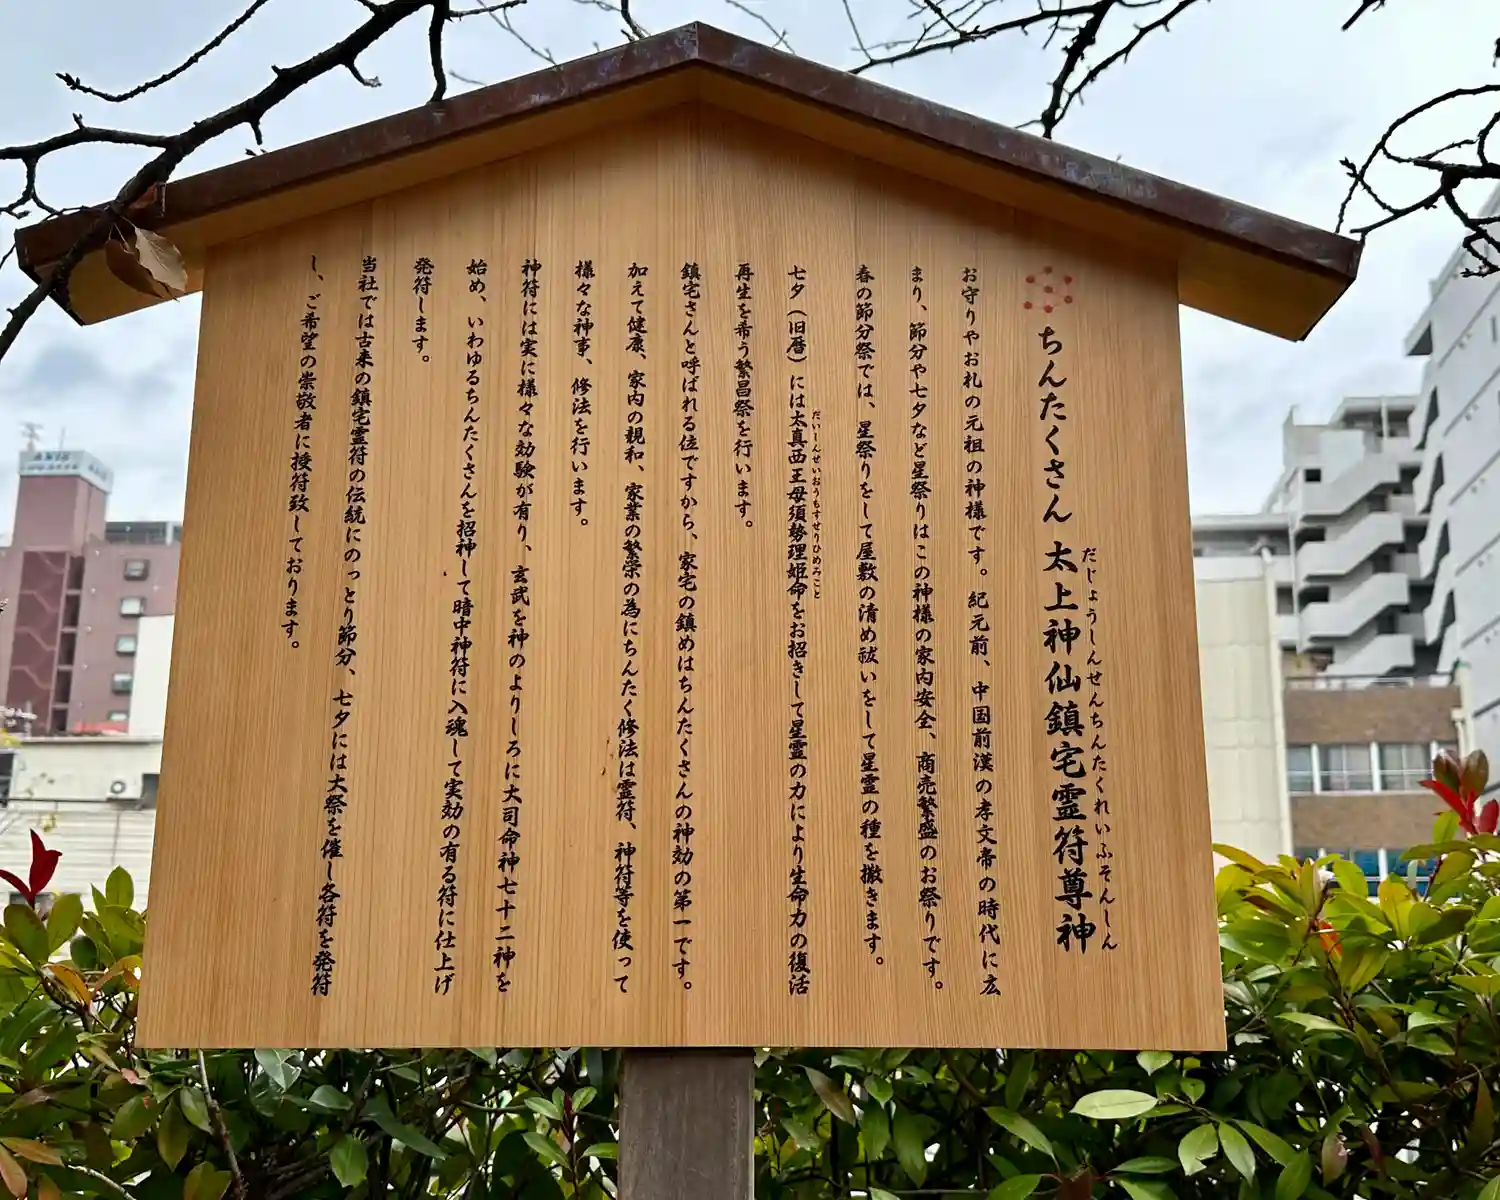 ちんたくさん 太上神仙鎮宅霊符尊神
だじょうしんせんちんたくれいふそんしん
お守りやお札の元祖の神様です。紀元前、中国前漢の孝文帝の時代に広
まり、節分や七夕など星祭りはこの神様の家内安全、商売繁盛のお祭りです。
春の節分祭では、星祭りをして屋敷の清め祓いをして星霊の種を撒きます。
七夕(旧暦)には太真西王母須勢理姫命をお招きして星霊の力により生命力の復活
だいしんせいおうもすせりひめみこと
再生を希う繁昌祭を行います。
鎮宅さんと呼ばれる位ですから、家宅の鎮めはちんたくさんの神効の第一です。
加えて健康、家内の親和、家業の繁栄の為にちんたく修法は霊符、神符等を使って
様々な神事、修法を行います。
神符には実に様々な効験が有り、玄武を神のよりしろに大司命神七十二神を
始め、いわゆるちんたくさんを招神して暗中神符に入魂して実効の有る符に仕上げ
発符します。
当社では古来の鎮宅霊符の伝統にのっとり節分、七夕には大祭を催し各符を発符
し、ご希望の崇敬者に授符致しております。
AXIS